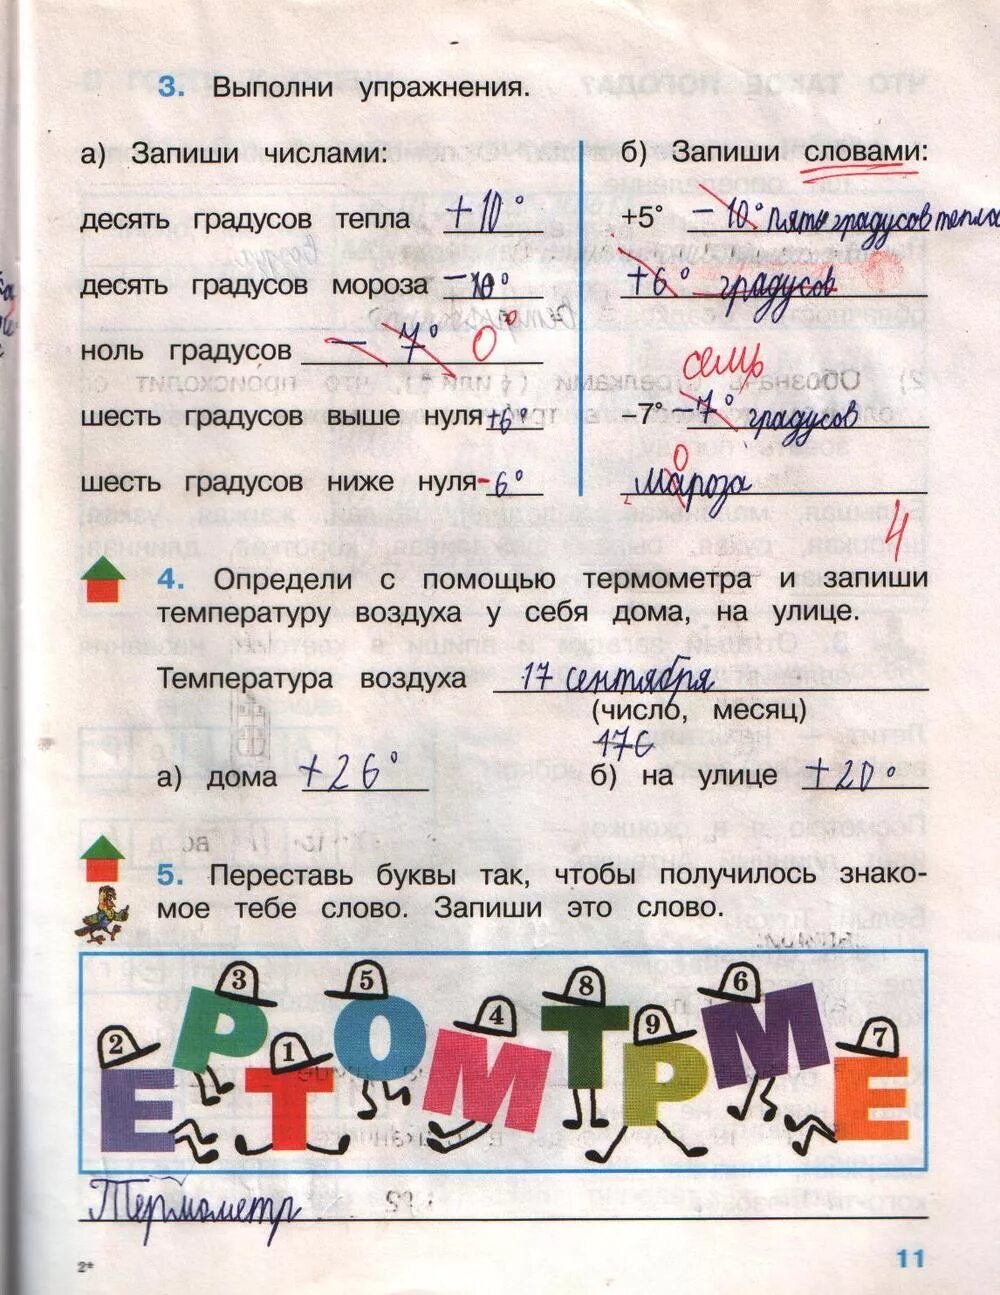 3. Выполни упражнения.
а) Запиши числами:
десять градусов тепла +10°
десять градусов мороза -10°
ноль градусов - 7° 0°
шесть градусов выше нуля +6°
шесть градусов ниже нуля -6°
б) Запиши словами:
+5° -10° пять градусов тепла
+6° градусов
семь
-7° -7° градусов
о
мароза
4
4. Определи с помощью термометра и запиши
температуру воздуха у себя дома, на улице.
Температура воздуха 17 сентября
(число, месяц)
176
а) дома +26° б) на улице +20°
5. Переставь буквы так, чтобы получилось знако-
мое тебе слово. Запиши это слово.
2 3 1 5 4 8 9 6 7
Е Р Т О М Т Р М Е
Термометр
2*
11